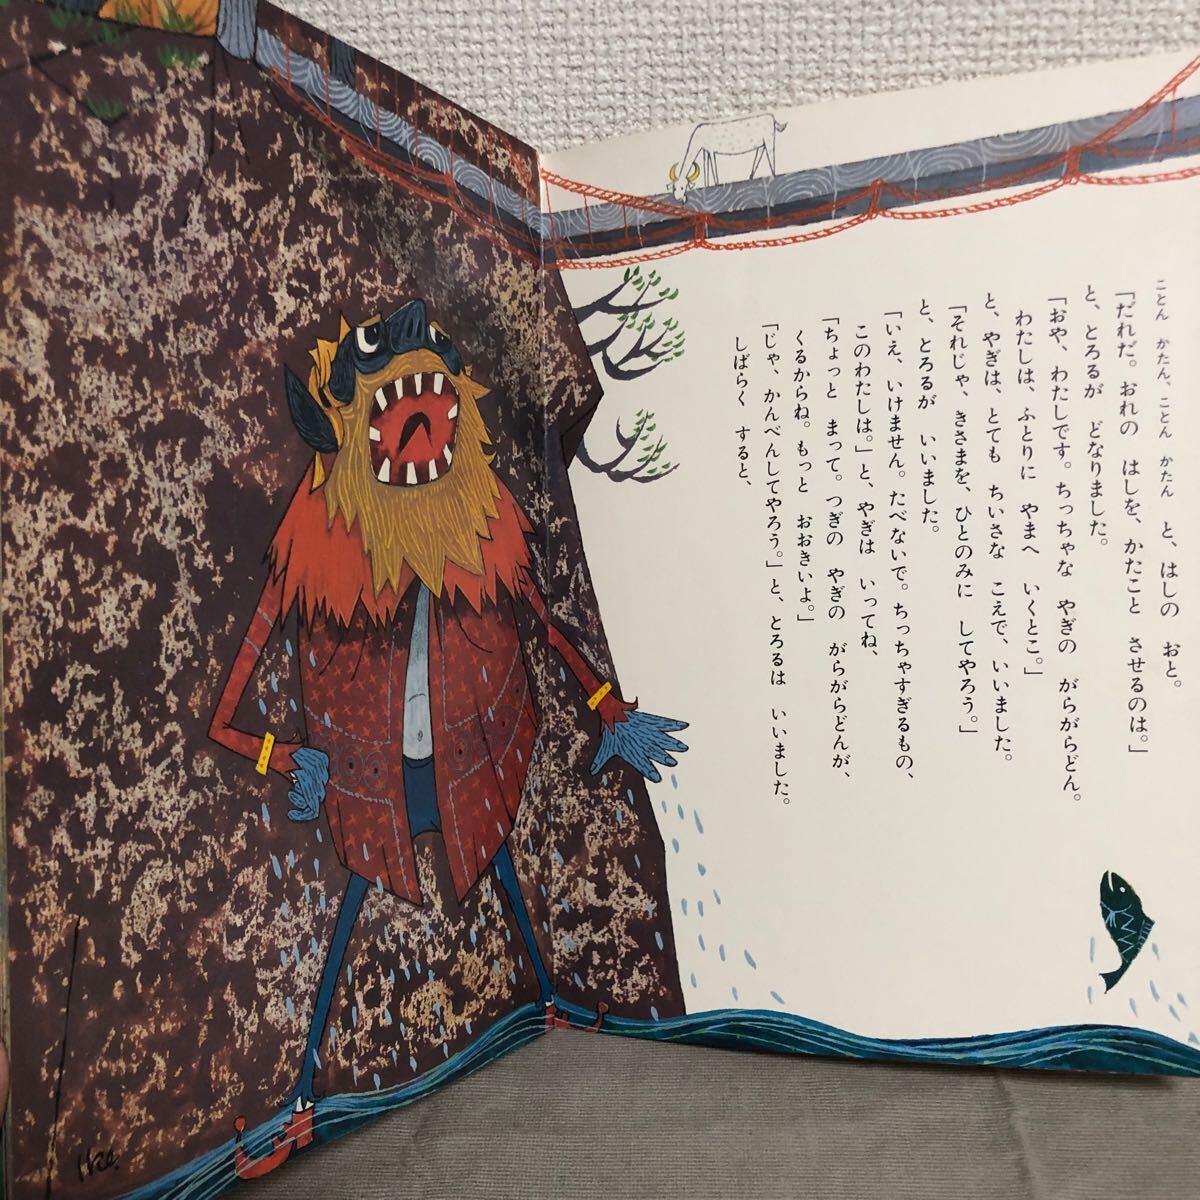 ことん かたん、ことん かたん と、はしの おと。
「だれだ。おれの はしを、かたこと させるのは。」
と、とろるが どなりました。
「おや、わたしです。ちっちゃな やぎの がらがらどん。
わたしは、ふとりに やまへ いくとこ。」
と、やぎは、とても ちいさな こえで、いいました。
「それじゃ、きさまを、ひとのみに してやろう。」
と、とろるが いいました。
「いえ、いけません。たべないで。ちっちゃすぎるもの、
このわたしは。」と、やぎは いってね、
「ちょっと まって。つぎの やぎの がらがらどんが、
くるからね。もっと おおきいよ。」
「じゃ、かんべんしてやろう。」と、とろるは いいました。
しばらく すると、